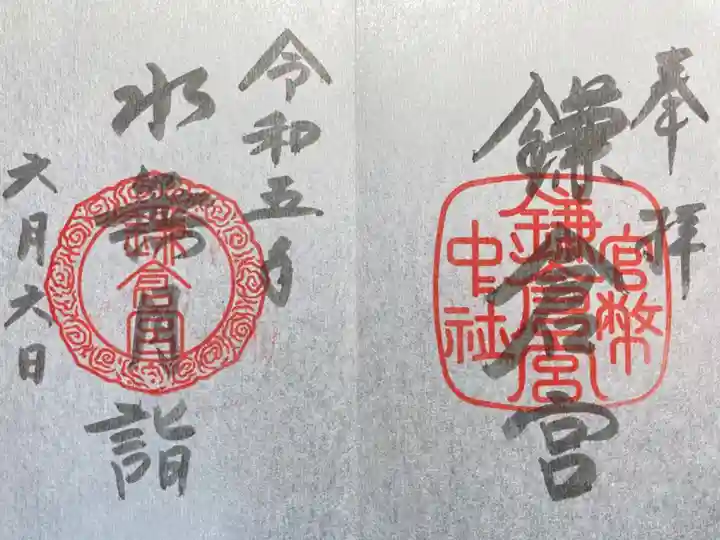 奉拝
鎌倉宮
官幣
鎌倉宮
中社
令和五年
水無月詣
鎌倉宮
六月六日